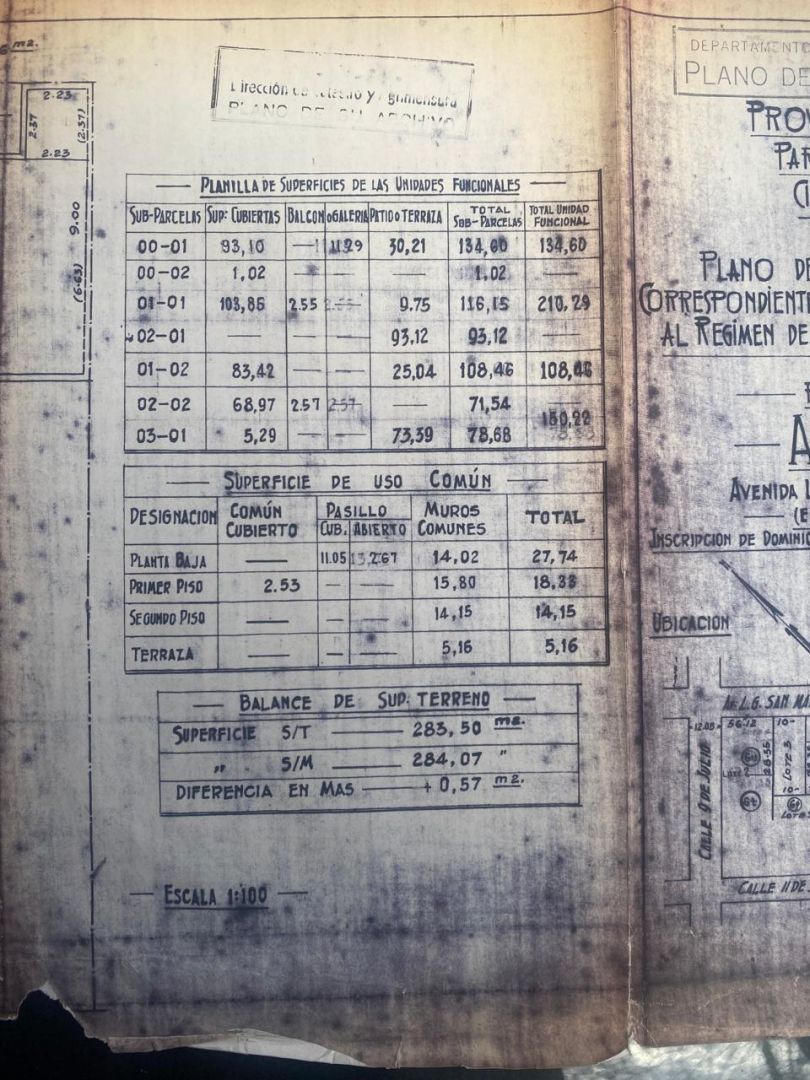 m2.
2.23
2.37
(2.37)
2.23
9.00
(6.63)
Dirección de Catastro y Agrimensura
PLANO DE SU ARCHIVO
DEPARTAMENTO
PLANO DE
— PLANILLA DE SUPERFICIES DE LAS UNIDADES FUNCIONALES —
SUB-PARCELAS SUP: CUBIERTAS BALCON o GALERIA PATIO o TERRAZA TOTAL SUB-PARCELAS TOTAL UNIDAD FUNCIONAL
00-01 93,10 — 11.29 30,21 134,60 134,60
00-02 1,02 — — — 1,02 —
01-01 103,85 2.55 9.75 116,15 210,29
02-01 — — — 93,12 93,12 —
01-02 83,42 — — 25,04 108,46 108,46
02-02 68,97 2.57 2.57 — 71,54 —
03-01 5,29 — — 73,39 78,68 150,22
— SUPERFICIE DE USO COMÚN —
DESIGNACION COMÚN CUBIERTO PASILLO CUB. ABIERTO MUROS COMUNES TOTAL
PLANTA BAJA — 11.05 2.67 14,02 27,74
PRIMER PISO 2.53 — — 15,80 18,33
SEGUNDO PISO — — — 14,15 14,15
TERRAZA — — — 5,16 5,16
— BALANCE DE SUP: TERRENO —
SUPERFICIE S/T — 283,50 m2.
" S/M — 284,07 "
DIFERENCIA EN MAS — + 0,57 m2.
— ESCALA 1:100 —
PROV
PAR
CI
PLANO DE
CORRESPONDIENTE
AL REGIMEN DE
A
AVENIDA L
(E
INSCRIPCION DE DOMINIO
UBICACION
AV. L.G. SAN MA
12.05 56.12 10-
CALLE 9 DE JULIO
LOTE 3
10-
CALLE 11 DE